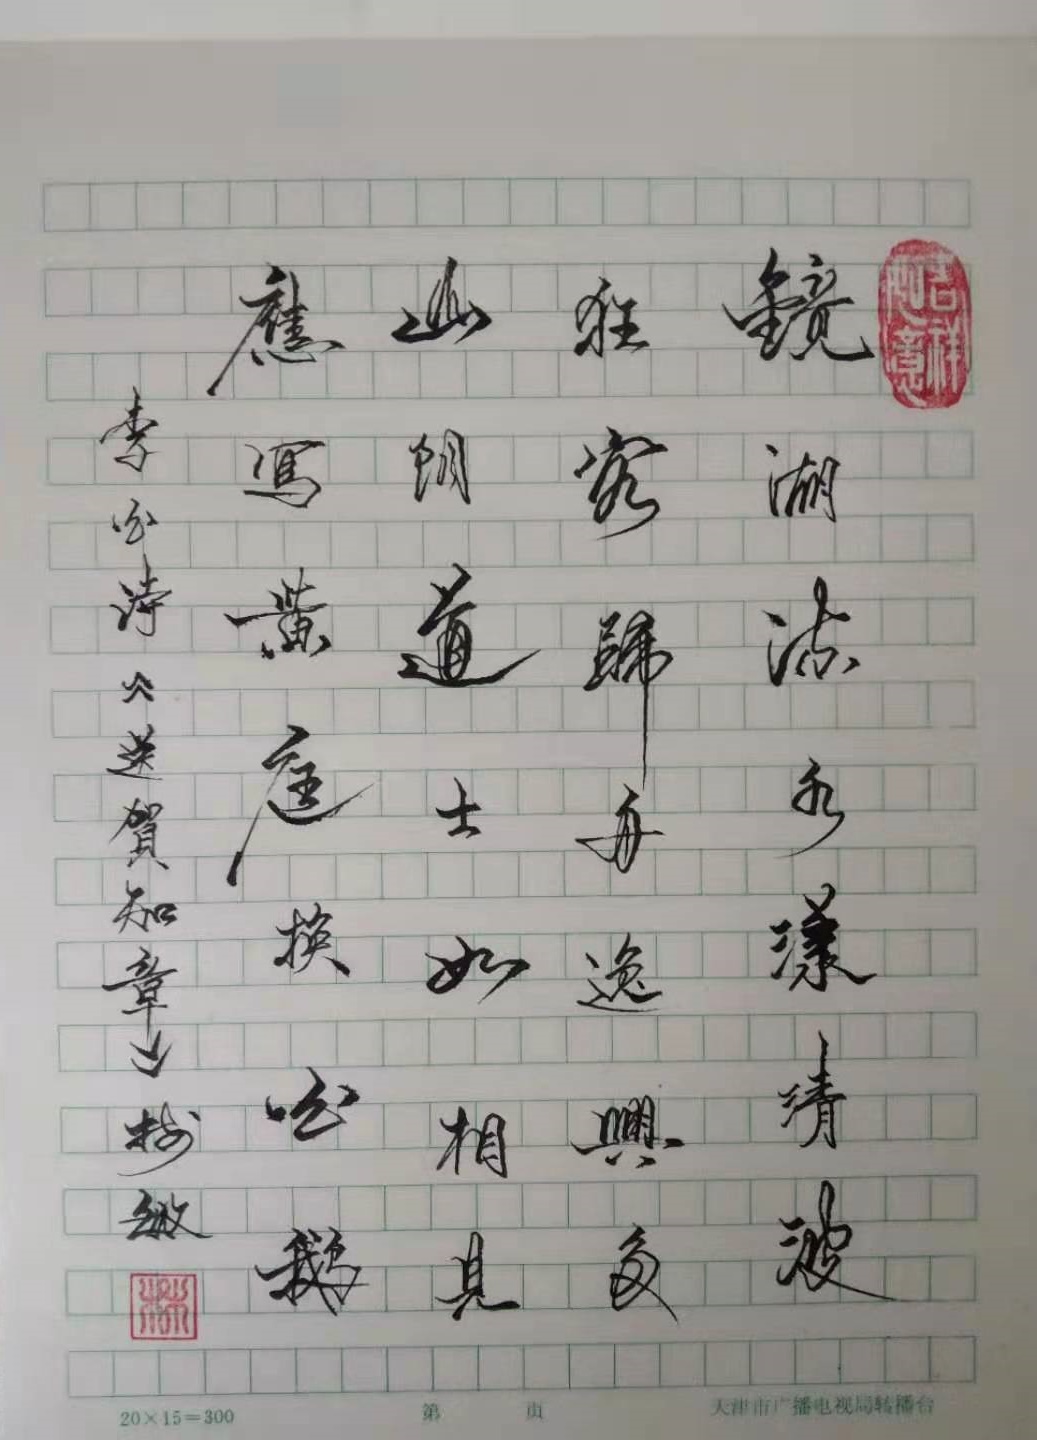 吉祥如意
鏡湖流水漾清波
狂客歸舟逸興多
山阴道士如相見
應寫黃庭換白鵝
李白詩《送賀知章》 敏
20×15=300 第 页 天津市广播电视局转播台